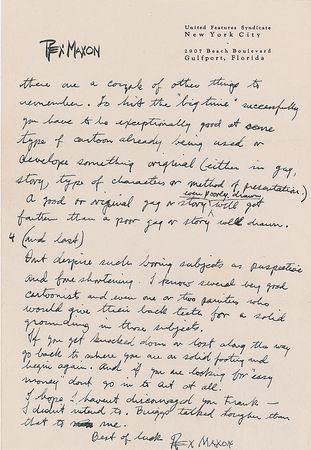 REX MAXON
United Features Syndicate
New York City
2907 Beach Boulevard
Gulfport, Florida
there are a couple of other things to
remember. To hit the "big time" successfully
you have to be exceptionally good at some
type of cartoon already being used or
develope something original (either in gag,
story, type of characters or method of presentation.)
even poorly drawn
A good or original gag or story will get
farther than a poor gag or story well drawn.
4 (and last)
Dont despise such boring subjects as perspective
and fore shortening. I know several very good
cartoonists and even one or two painters who
would give their back teeth for a solid
grounding in those subjects.
If you get knocked down or lost along the way
go back to where you are on solid footing and
begin again. And, if you are looking for "easy
money" dont go in to art at all.
I hope I havent discouraged you Frank –
I didnt intend to. Briggs talked tougher than
that to me.
Best of luck REX MAXON